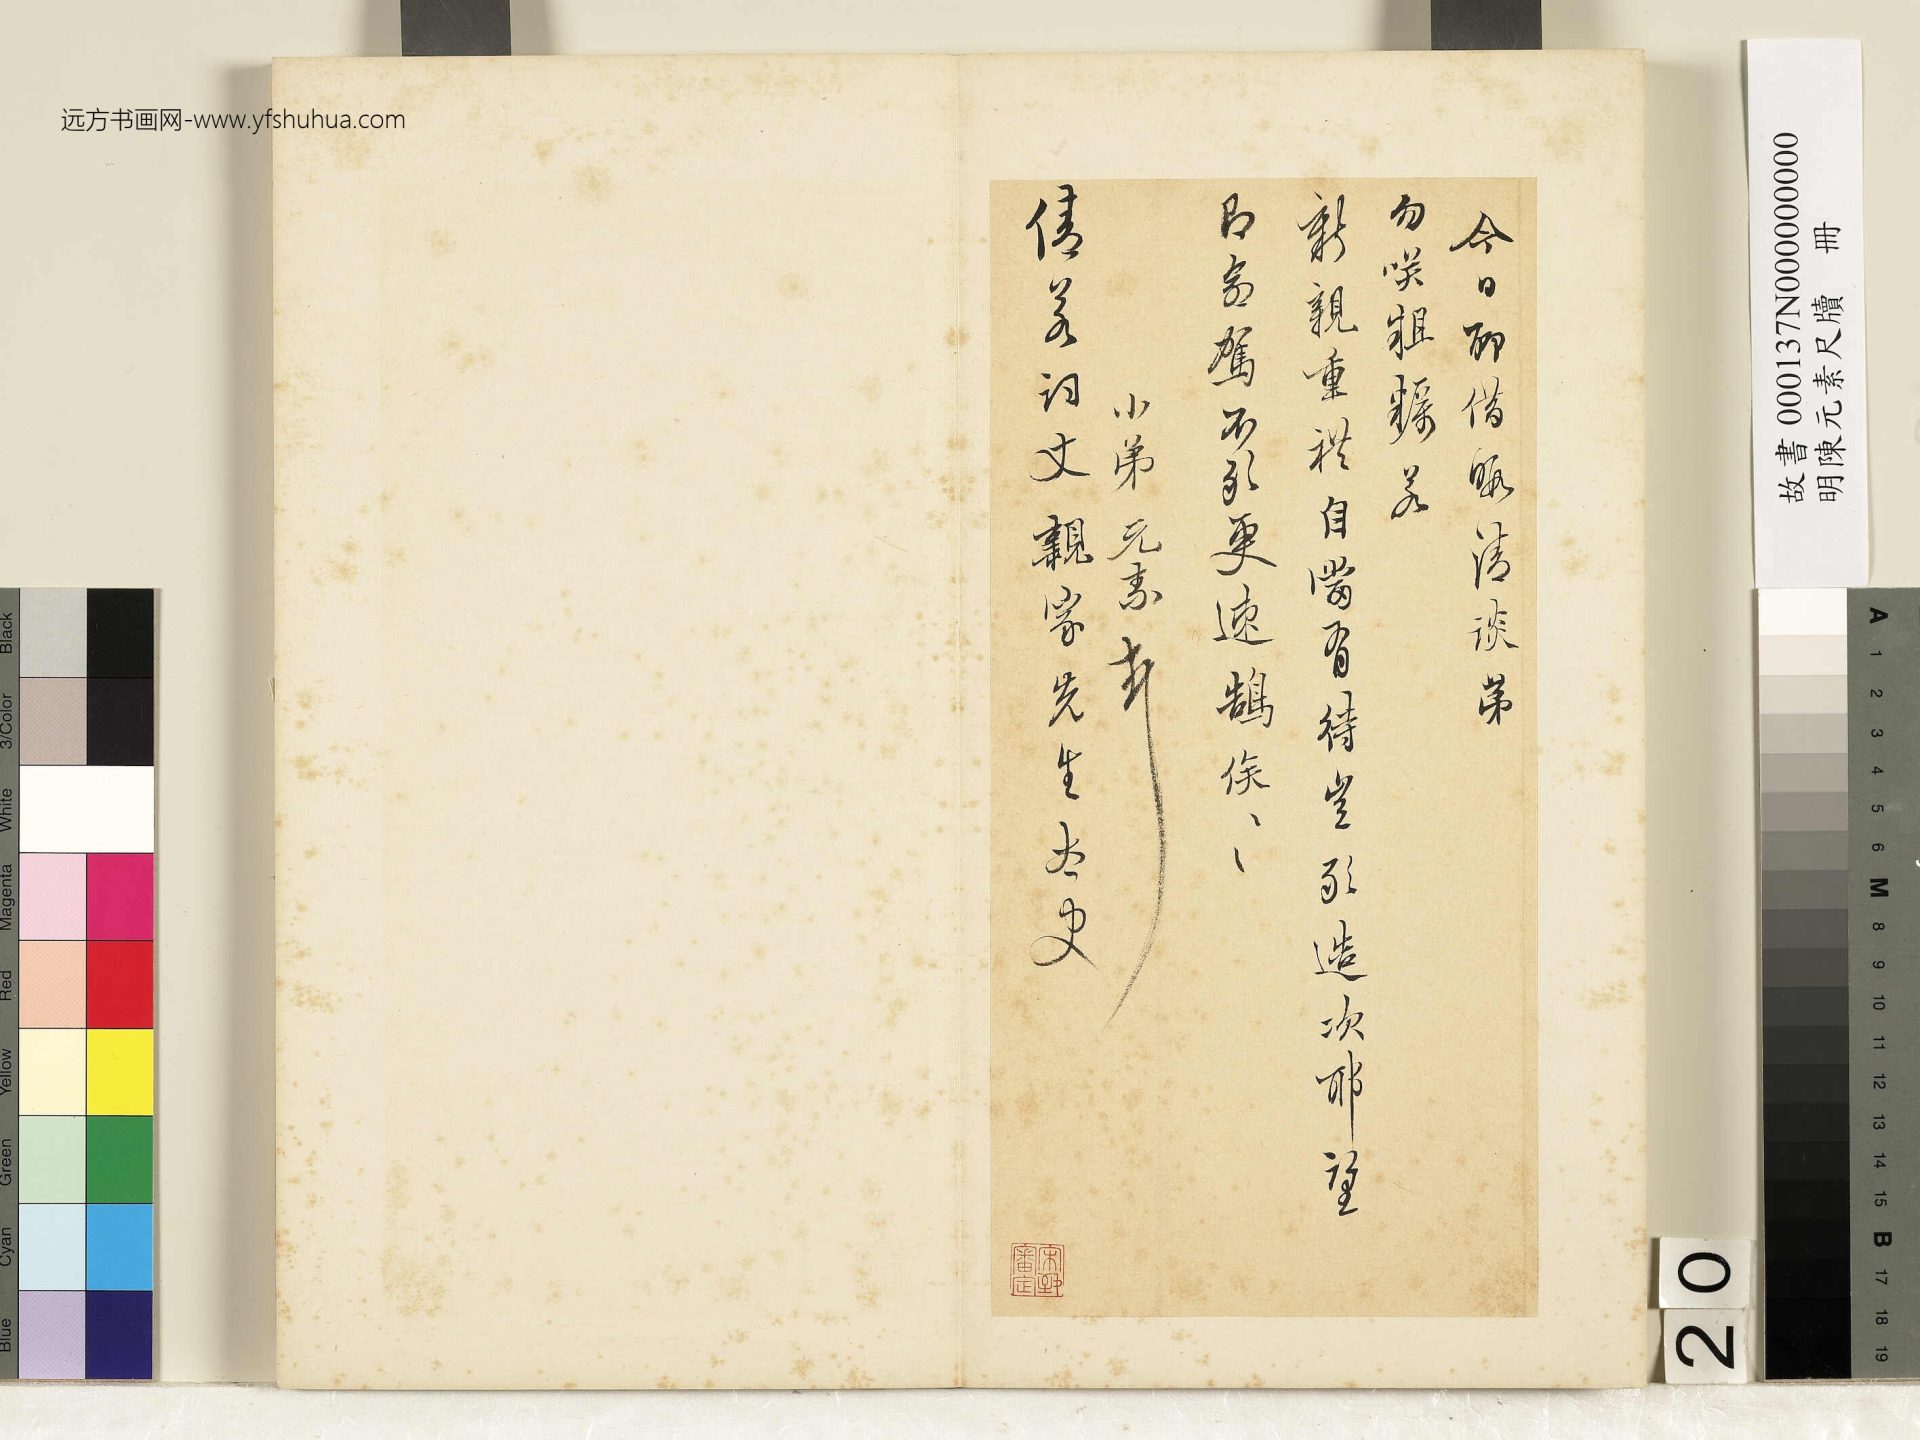 今日聊借暇清談第
勿咲粗糲若
新親重禮自當有待豈敢造次耶望
即命駕不敢更速鵠俟〻
小弟元素頓
倩若詞丈親家先生大史
宋犖審定
远方书画网-www.yfshuhua.com
故書 000137N000000000
明陳元素尺牘 冊
20
Black
3/Color
White
Magenta
Red
Yellow
Green
Cyan
Blue
A 1 2 3 4 5 6 M 8 9 10 11 12 13 14 15 B 17 18 19